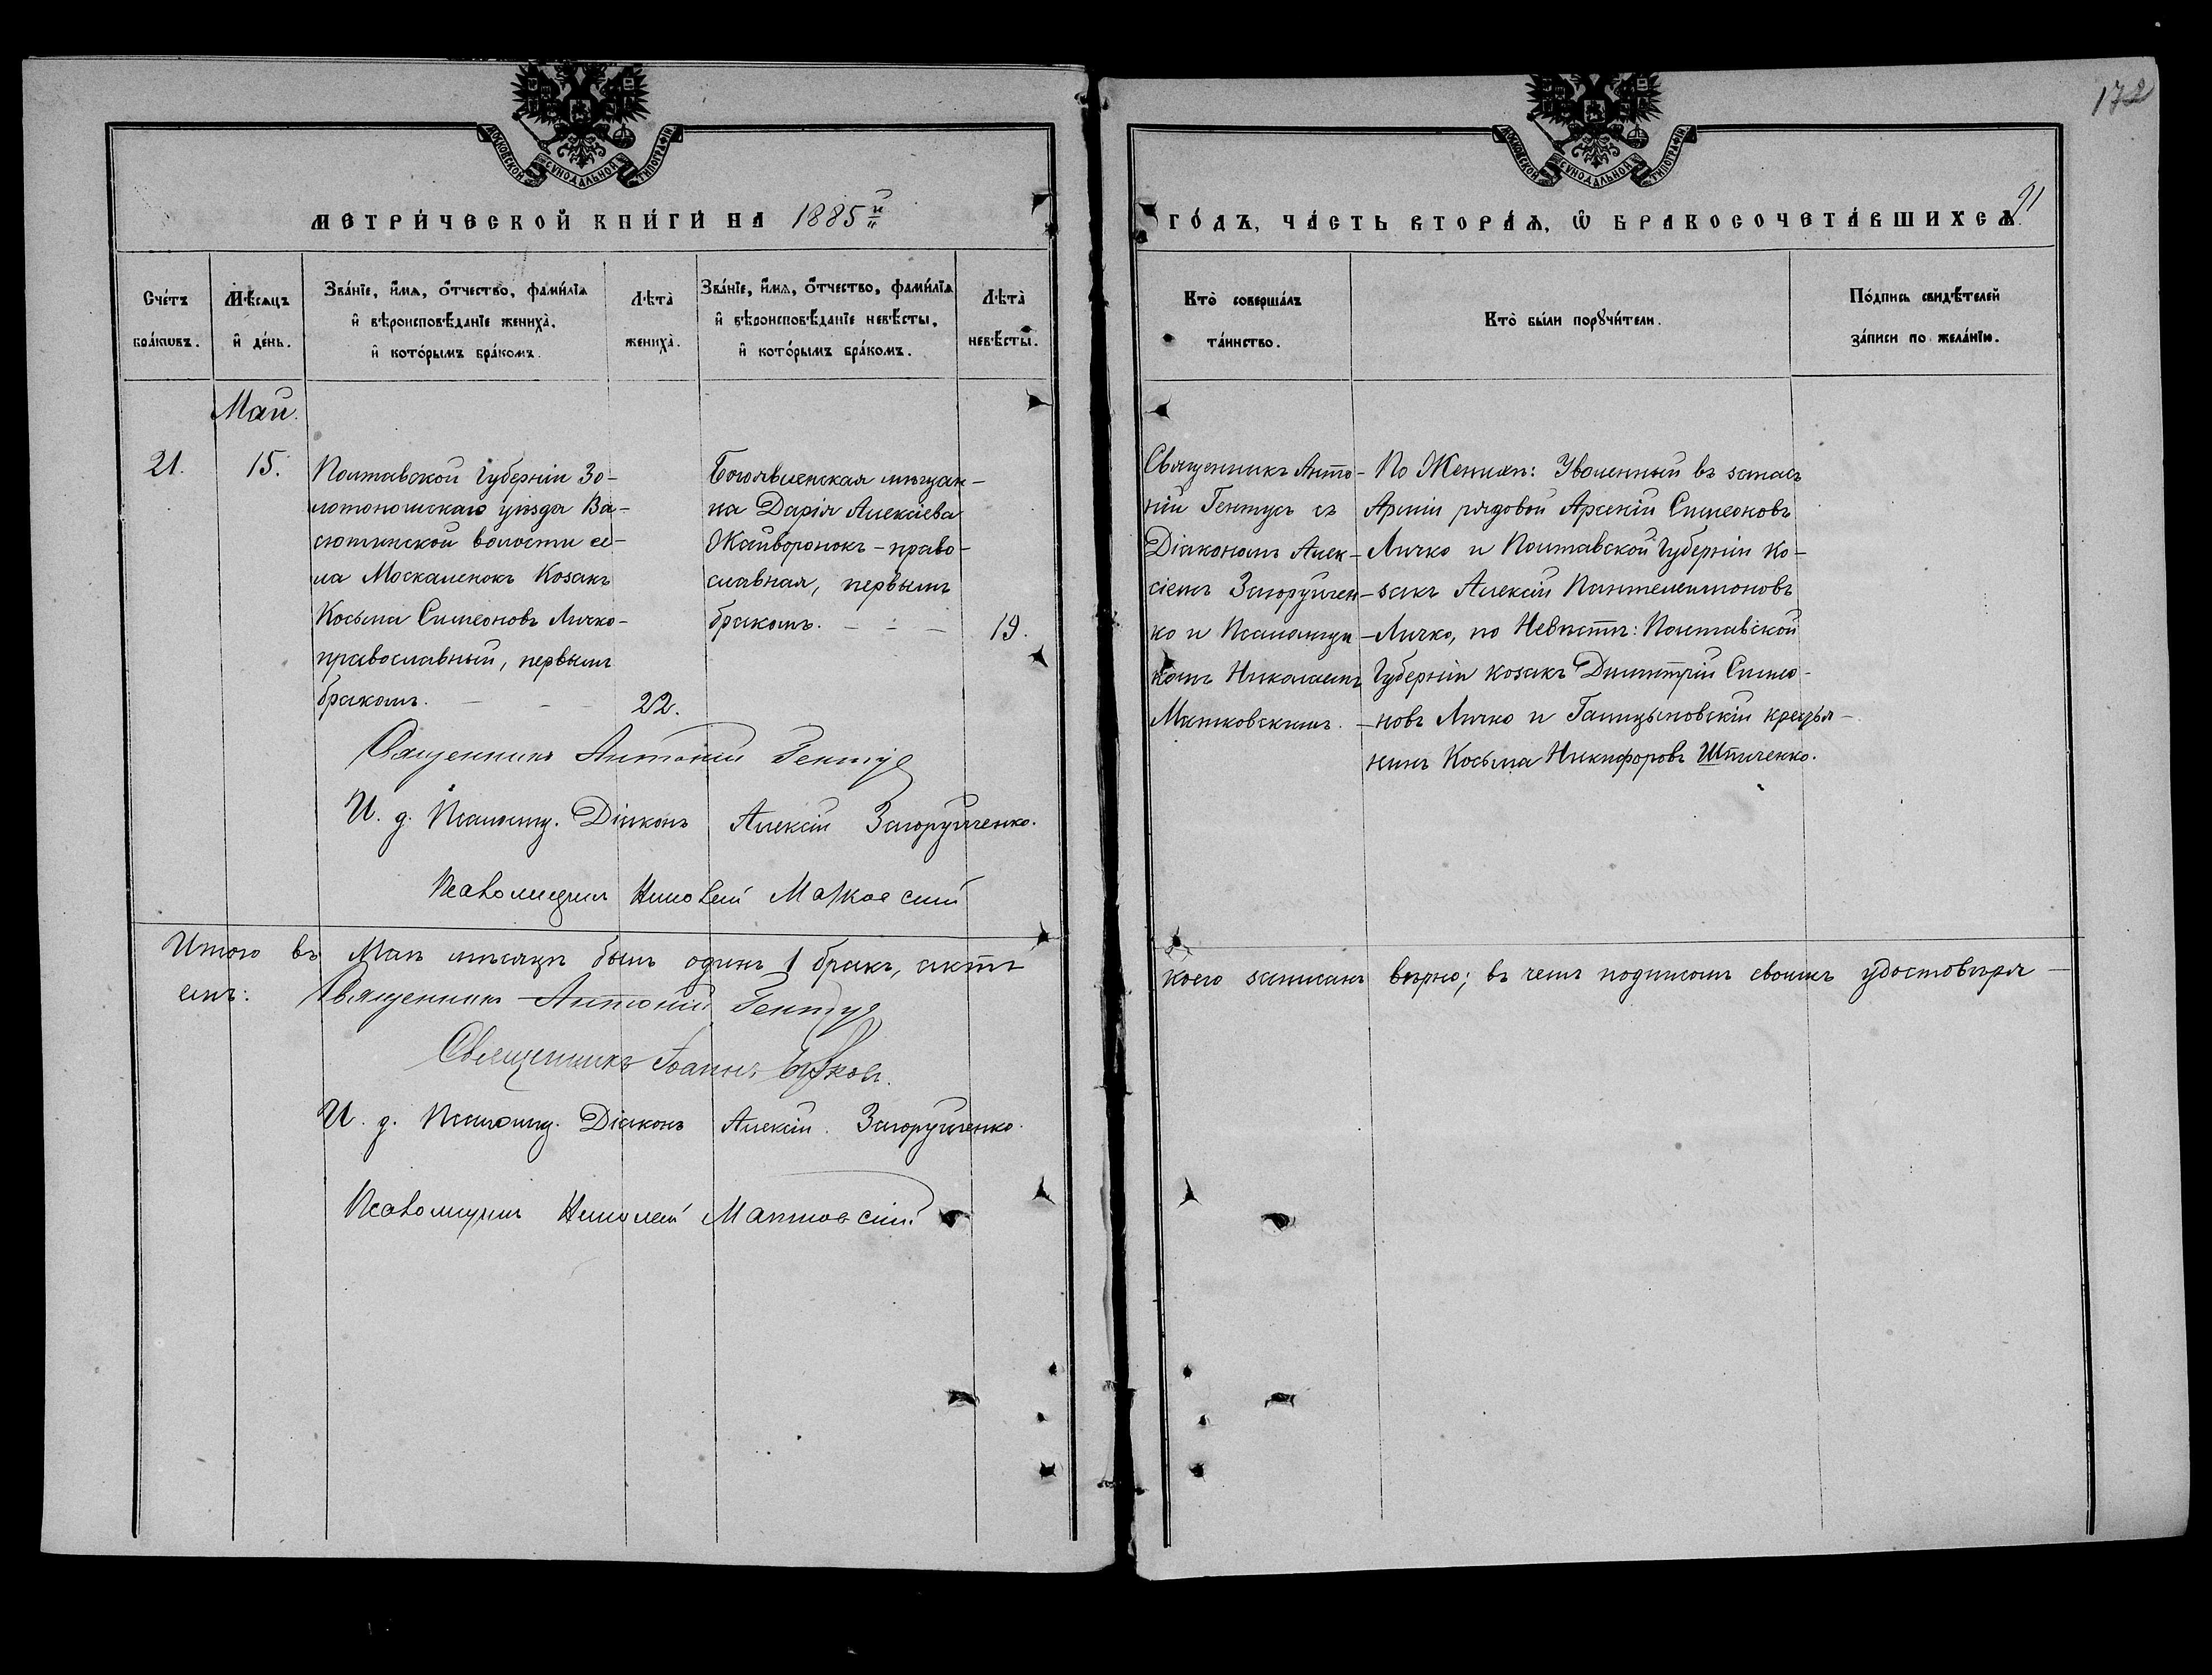 172
МОСКОВСКОЙ СУНОДАЛЬНОЙ ТИПОГРАФІИ
МОСКОВСКОЙ СУНОДАЛЬНОЙ ТИПОГРАФІИ
МЕТРИ́ЧЕСКОЙ КНИ́ГИ НА 1885й
ГО́ДЪ, ЧА́СТЬ ВТОРА́Ѧ, Ѡ҆ БРАКОСОЧЕТА́ВШИХСѦ.
91
Сче́тъ бра́кѡвъ.
Мѣ́сѧцъ и҆ де́нь.
Зва́нїе, и҆́мѧ, о҆́тчество, фами́лїѧ и҆ вѣроисповѣ́данїе жениха̀, и҆ кото́рымъ бра́комъ.
Лѣта̀ жениха̀.
Зва́нїе, и҆́мѧ, о҆́тчество, фами́лїѧ и҆ вѣроисповѣ́данїе невѣ́сты, и҆ кото́рымъ бра́комъ.
Лѣта̀ невѣ́сты.
Кто̀ соверша́лъ та́инство.
Кто̀ бы́ли порꙋчи́тели.
По́дпись свидѣ́телей за́писи по жела́нїю.
Май.
21.
15.
Полтавской Губерніи Зо-
лотоношскаго уѣзда Ва-
сютинской волости се-
ла Москаленокъ Козакъ
Косьма Симеоновъ Личко-
православный, первымъ
бракомъ. - - - 22.
Богоявленская мѣщан-
ка Дарія Алексіева
Жайворонокъ - право-
славная, первымъ
бракомъ. - - - 19.
Священникъ Анто-
ній Гентуъ съ
Діакономъ Алек-
сіемъ Загоруйчен-
ко и Псаломщи-
комъ Николаемъ
Матковскимъ.
По Женихѣ: Уволенный въ запасъ
Арміи рядовой Арсеній Симеоновъ
Личко и Полтавской Губерніи Ко-
закъ Алексій Пантелеимоновъ
Личко, по Невѣстѣ: Полтавской
Губерніи козакъ Димитрій Симео-
новъ Личко и Галицыновскій кресья-
нинъ Косьма Никифоровъ Шпиченко.
Священникъ Антоній
И. д. Псаломщ. Діаконъ Алексій Загоруйченко.
Псаломщикъ Николай Матковскій
Итого въ Маѣ мѣсяцѣ былъ одинъ 1 бракъ, актъ
коего записанъ вѣрно; въ чемъ подписомъ своимъ удостовѣря-
емъ: Священникъ Антоній
Священникъ Іоаннъ
И. д. Псаломщ. Діаконъ Алексій Загоруйченко.
Псаломщикъ Николай Матковскій